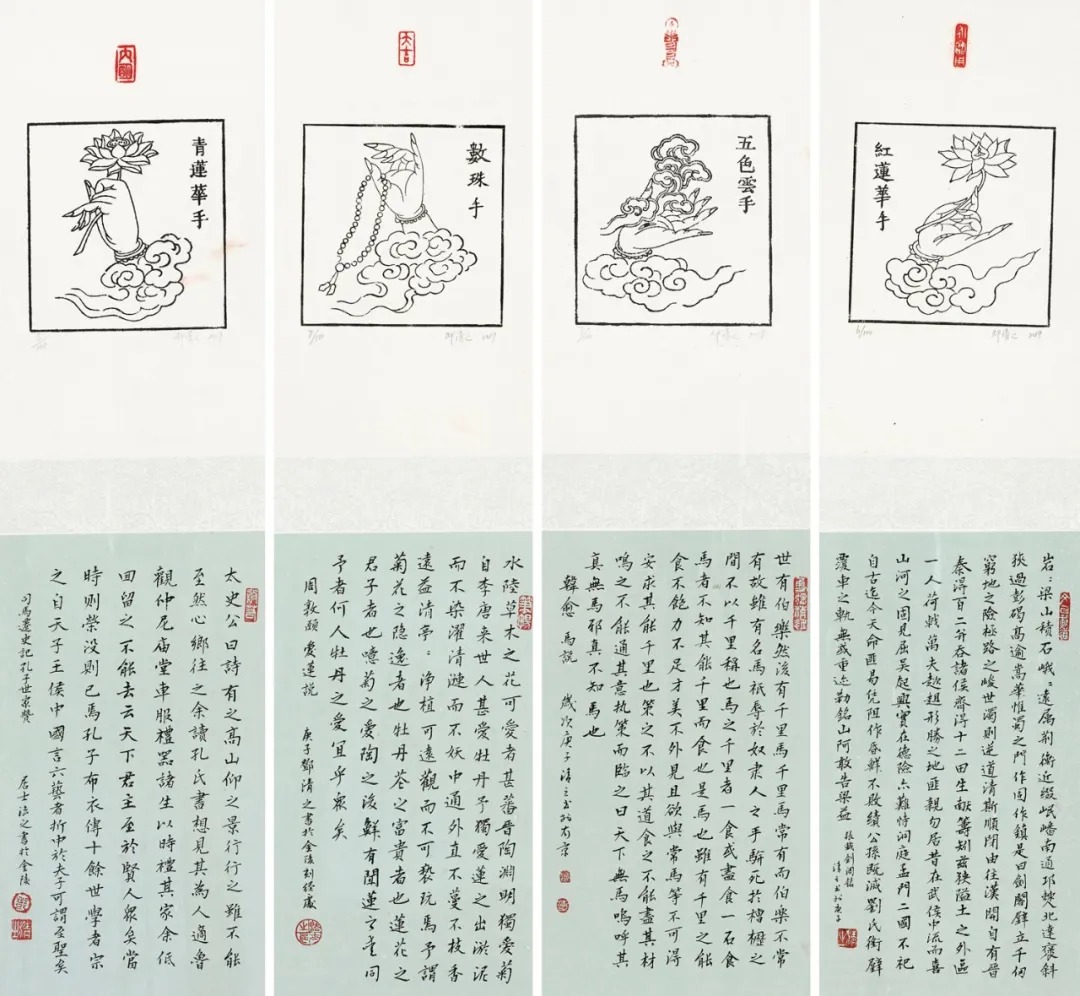 青蓮華手
太史公曰詩有之高山仰之景行行之雖不能
至然心鄉往之余讀孔氏書想見其為人適魯
觀仲尼廟堂車服禮器諸生以時禮其家余低
回留之不能去云天下君主至於賢人眾矣當
時則榮沒則已焉孔子布衣傳十餘世學者宗
之自天子王侯中國言六藝者折中於夫子可謂至聖矣
司馬遷史記孔子世家贊
居士清之書於金陵
數珠手
水陸草木之花可愛者甚蕃晉陶淵明獨愛菊
自李唐来世人甚愛牡丹予獨愛蓮之出淤泥
而不染濯清漣而不妖中通外直不蔓不枝香
遠益清亭:淨植可遠觀而不可褻玩焉予謂
菊花之隐逸者也牡丹花之富貴者也蓮花之
君子者也噫菊之愛陶之後鮮有聞蓮之愛同
予者何人牡丹之愛宜乎眾矣
周敦頤 愛蓮說
庚子鄭清之書於金陵刻經處
五色雲手
世有伯樂然後有千里馬千里馬常有而伯樂不常
有故雖有名馬祇辱於奴隶人之手駢死於槽櫪之
間不以千里稱也馬之千里者一食或盡食一石食
馬者不知其能千里而食也是馬也雖有千里之能
食不飽力不足才美不外見且欲與常馬等不可得
安求其能千里也策之不以其道食之不能盡其材
鳴之不能通其意執策而臨之曰天下無馬嗚呼其
真無馬邪真不知馬也
韓愈 馬說 歲次庚子清之書於南京
紅蓮華手
6/100
岩:梁山積石峨:遠屬荊衡近綴岷嶓南通邛僰北達褒斜
狹過彭碣高逾嵩華惟蜀之門作固作鎮是曰劍閣壁立千仞
窮地之險極路之峻世濁則逆道清斯順閉由往漢開自有晉
秦得百二并吞諸侯齊得十二田生献籌矧茲狹隘土之外區
一人荷戟萬夫趑趄形勝之地匪親勿居昔在武侯中流而喜
山河之固見屈吳起興實在德險亦難恃洞庭孟門二國不祀
自古迄今天命匪易凭阻作昏鮮不敗績公孫既滅劉氏銜璧
覆車之軌無或重迹勒銘山阿敢告梁益
張載劍閣銘
清之書於庚子